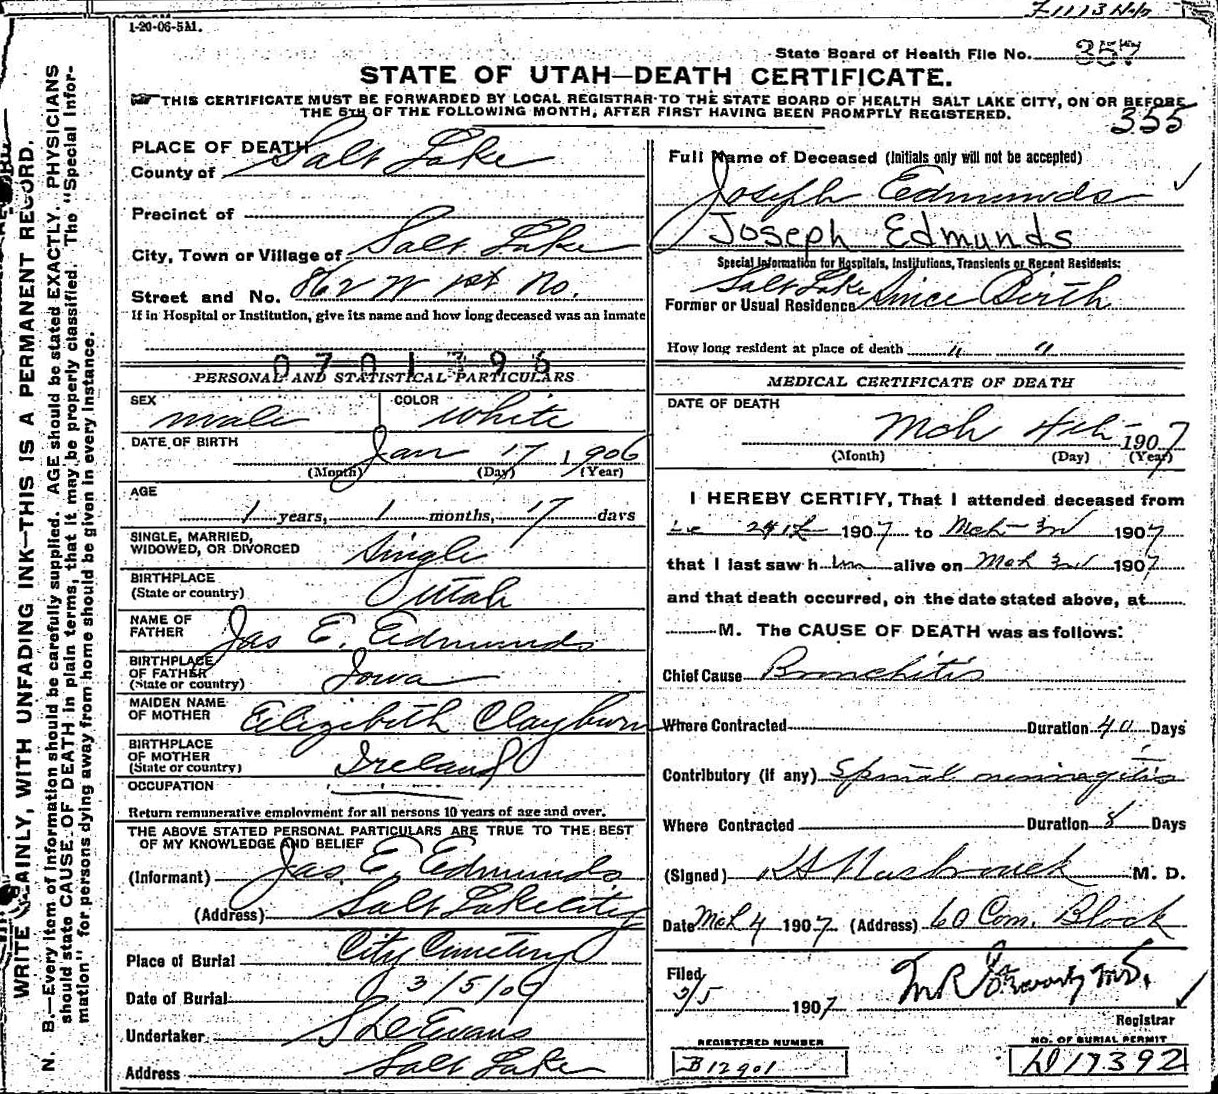 1-20-06-5M.
State Board of Health File No. 357
STATE OF UTAH—DEATH CERTIFICATE.
THIS CERTIFICATE MUST BE FORWARDED BY LOCAL REGISTRAR TO THE STATE BOARD OF HEALTH SALT LAKE CITY, ON OR BEFORE
THE 5TH OF THE FOLLOWING MONTH, AFTER FIRST HAVING BEEN PROMPTLY REGISTERED.
355
WRITE PLAINLY, WITH UNFADING INK—THIS IS A PERMANENT RECORD.
N. B.—Every item of information should be carefully supplied. AGE should be stated EXACTLY. PHYSICIANS
should state CAUSE OF DEATH in plain terms, that it may be properly classified. The "Special Infor-
mation" for persons dying away from home should be given in every instance.
PLACE OF DEATH
County of Salt Lake
Precinct of
City, Town or Village of Salt Lake
Street and No. 862 W 1st No.
If in Hospital or Institution, give its name and how long deceased was an inmate
0701796
PERSONAL AND STATISTICAL PARTICULARS
SEX male COLOR White
DATE OF BIRTH Jan 17 1906
(Month) (Day) (Year)
AGE
1 years, 1 months, 17 days
SINGLE, MARRIED,
WIDOWED, OR DIVORCED Single
BIRTHPLACE
(State or country) Utah
NAME OF
FATHER Jas E. Edmunds
BIRTHPLACE
OF FATHER
(State or country) Iowa
MAIDEN NAME
OF MOTHER Elizibeth Clayburn
BIRTHPLACE
OF MOTHER
(State or country) Ireland
OCCUPATION
Return remunerative employment for all persons 10 years of age and over.
THE ABOVE STATED PERSONAL PARTICULARS ARE TRUE TO THE BEST
OF MY KNOWLEDGE AND BELIEF
(Informant) Jas. E. Edmunds
(Address) Salt Lake City
Place of Burial City Cemetery
Date of Burial 3/5/07
Undertaker S D Evans
Address Salt Lake
Full Name of Deceased (Initials only will not be accepted)
Joseph Edmunds
Joseph Edmunds
Special Information for Hospitals, Institutions, Transients or Recent Residents:
Former or Usual Residence Salt Lake Since Birth
How long resident at place of death " "
MEDICAL CERTIFICATE OF DEATH
DATE OF DEATH
Mch 4th 1907
(Month) (Day) (Year)
I HEREBY CERTIFY, That I attended deceased from
1907 to Mch 3rd 1907
that I last saw him alive on Mch 3rd 1907
and that death occurred, on the date stated above, at
M. The CAUSE OF DEATH was as follows:
Chief Cause Bronchitis
Where Contracted Duration 40 Days
Contributory (if any) Spinal meningitis
Where Contracted Duration 8 Days
(Signed) M. D.
Date Mch 4 1907 (Address) 60 Com. Block
Filed
3/5 1907
Registrar
REGISTERED NUMBER
B12901
NO. OF BURIAL PERMIT
D17392